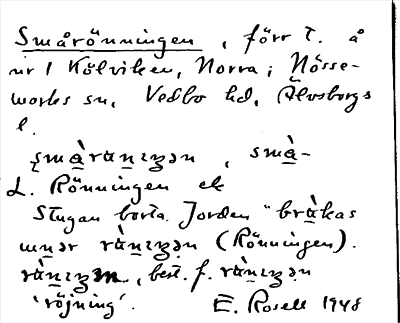 Smårönningen, förr T. å
nr 1 Kölviken, Norra; Nösse-
marks sn, Vedbo hd, Älvsborgs
l.
smàrànıŋən, smà-
L. Rönningen ek
Stugan borta. Jorden "bràkas
unər rànıŋən (Rönningen).
rànıŋ, best. f. rànıŋən
'röjning'. E. Rosell 1948